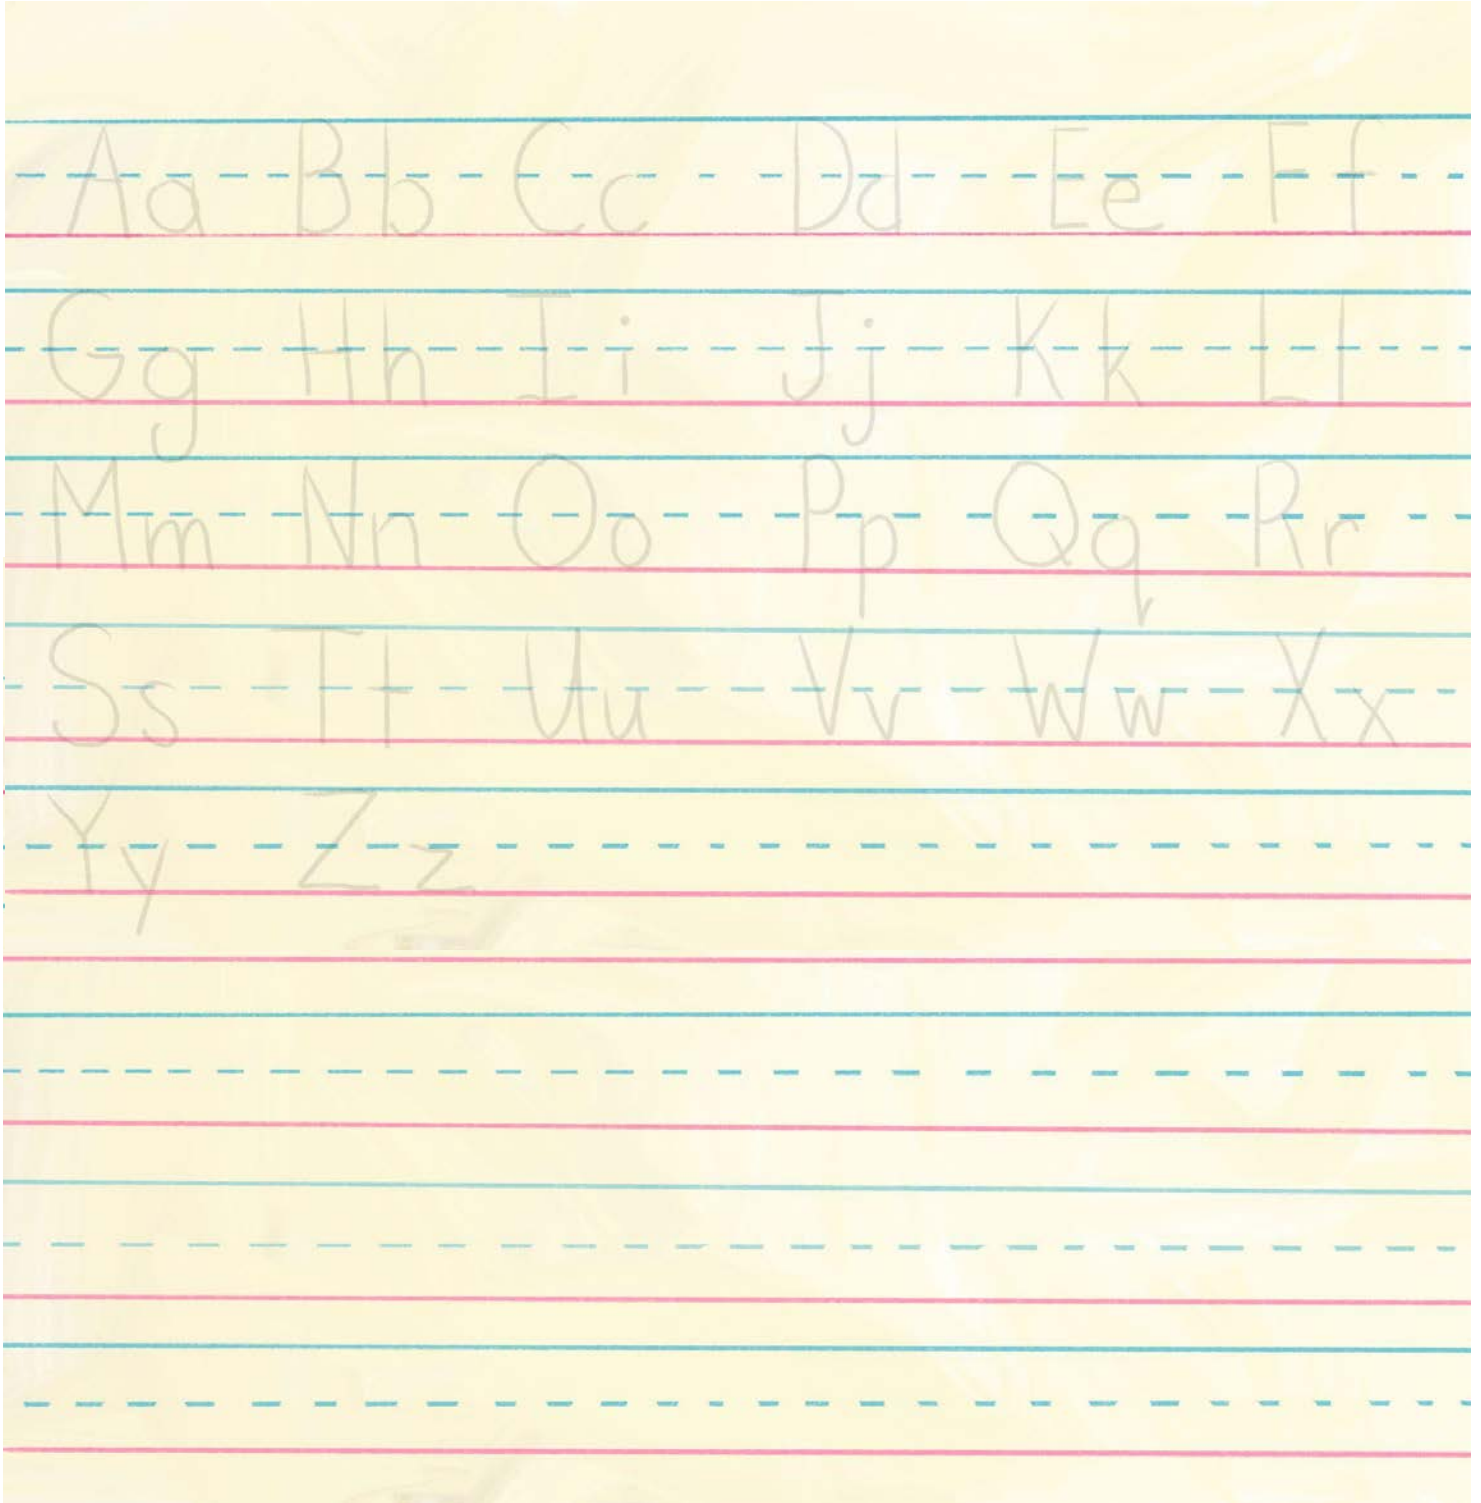 Aa Bb Cc Dd Ee Ff
Gg Hh Ii Jj Kk Ll
Mm Nn Oo Pp Qq Rr
Ss Tt Uu Vv Ww Xx
Yy Zz